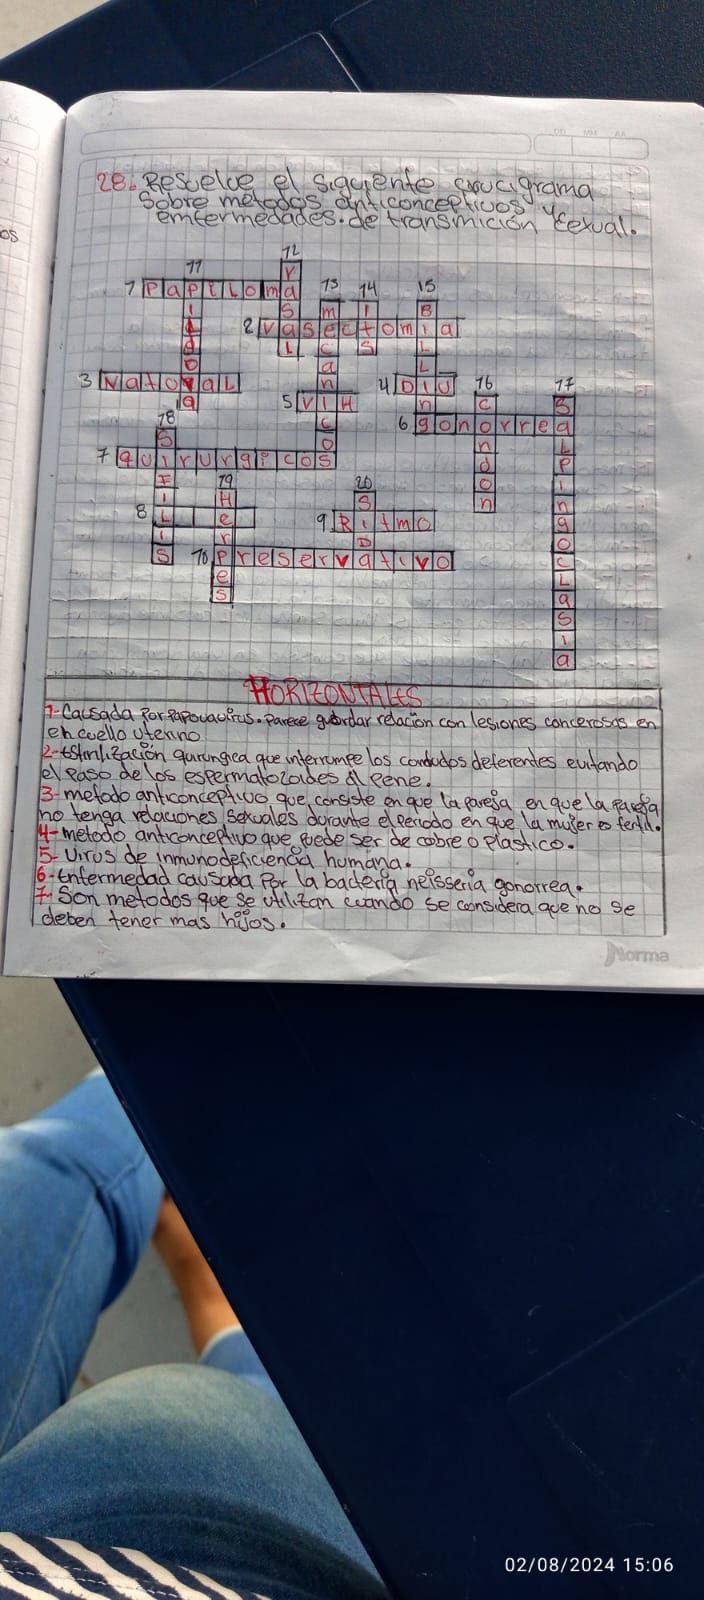 28. Resuelve el siguiente crucigrama
Sobre metodos anticonceptivos y
emfermedades. de transmición sexual.
12
11
1 Papiloma
13 14 15
2 vasectomia
3 Natural
4 DIU
16
17
5 VIH
6 gonorrea
18
7 quirurgicos
19
20
8
9 Ritmo
10 preservativo
HORIZONTALES
1- Causada Por Papovavirus. Parece guardar relacion con lesiones cancerosas en
en cuello uterino
2- Esterilización quirurgica que interrumpe los conductos deferentes evitando
el Paso de los espermatozoides al Pene.
3- metodo anticonceptivo que consiste en que la pareja en que la pareja
no tenga relaciones sexuales durante el periodo en que la mujer es fertil.
4- metodo anticonceptivo que puede ser de cobre o plastico.
5- Virus de inmunodeficiencia humana.
6- Enfermedad causada Por la bacteria neisseria gonorrea.
7- Son metodos que se utilizan cuando se considera que no se
deben tener mas hijos.
Norma
02/08/2024 15:06